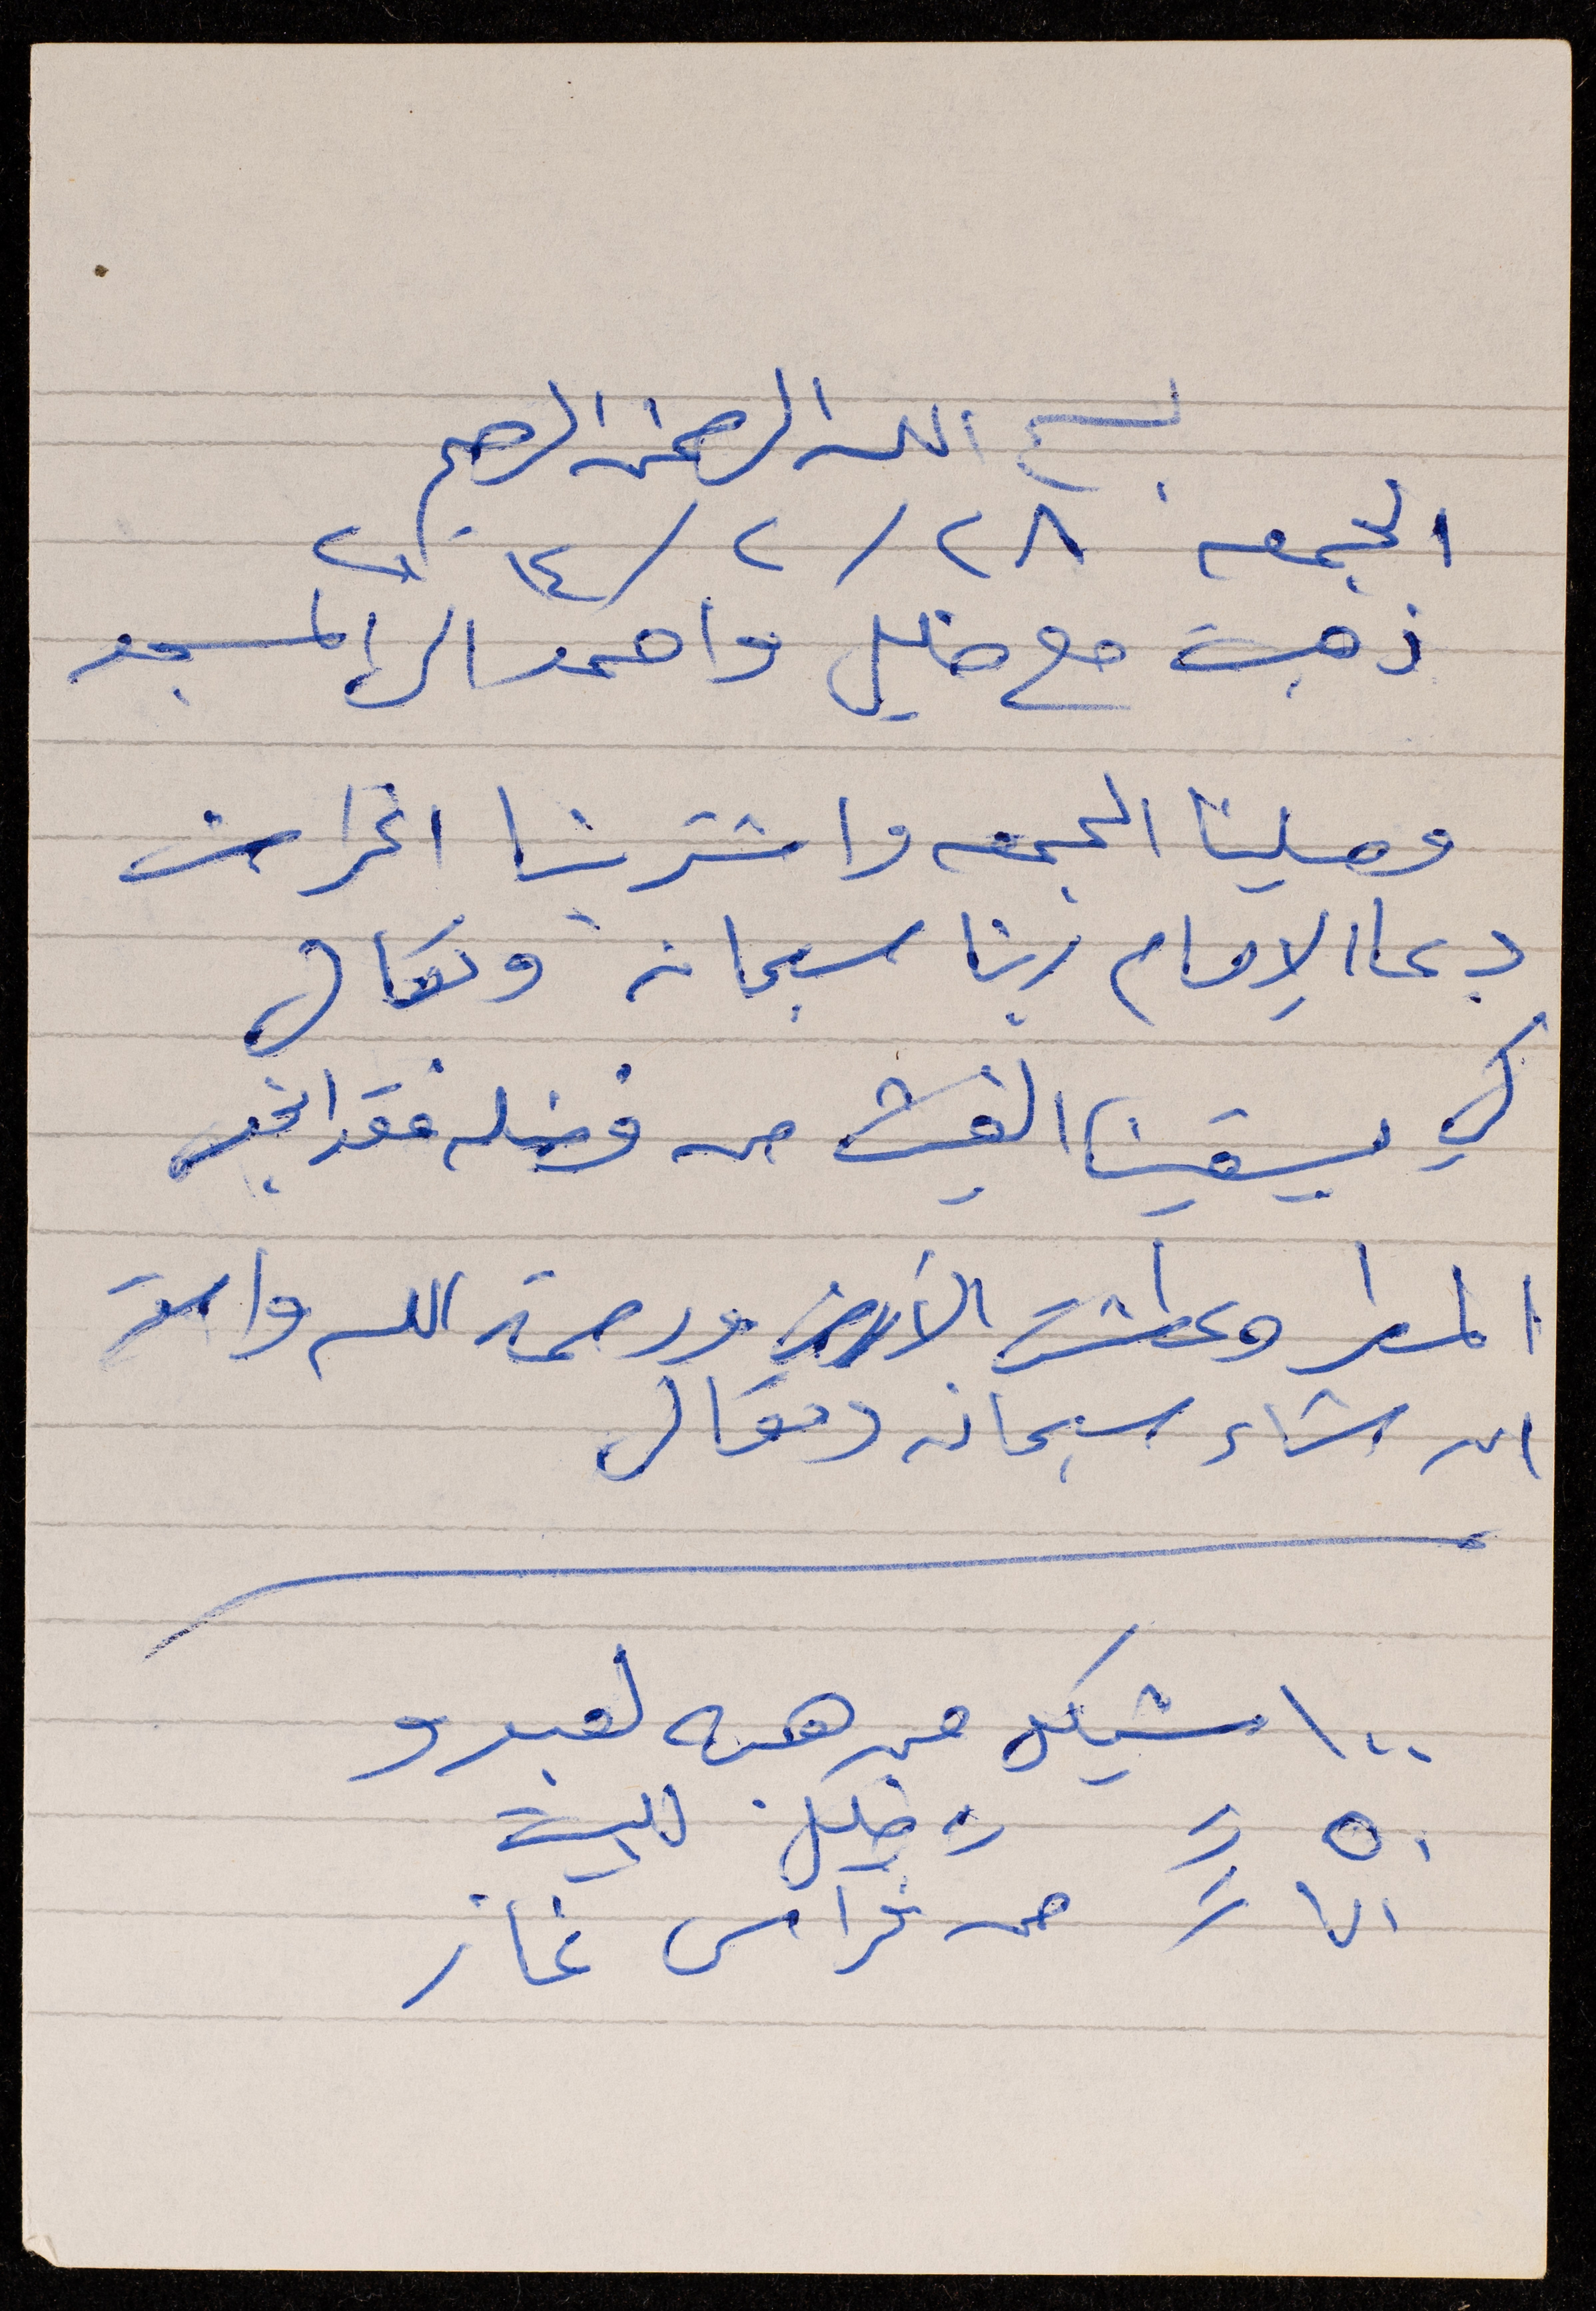 بسم الله الرحمن الرحيم
الجمعه ٢٨/٢/٢٠١٤
ذهبت مع خليل واحمد الى المسجد
وصلينا الجمعه واشترينا اغراض
دعا الإمام ربنا سبحانه وتعالى
كي يسقينا الغيث من فضله فقد انحبس
المطر وعطشت الأرض ورحمة الله واسعة
ان شاء سبحانه وتعالى
١٠٠ شيكل من هبه لعبدو
٥٠ // // خليل للبيت
// من فراس غاز